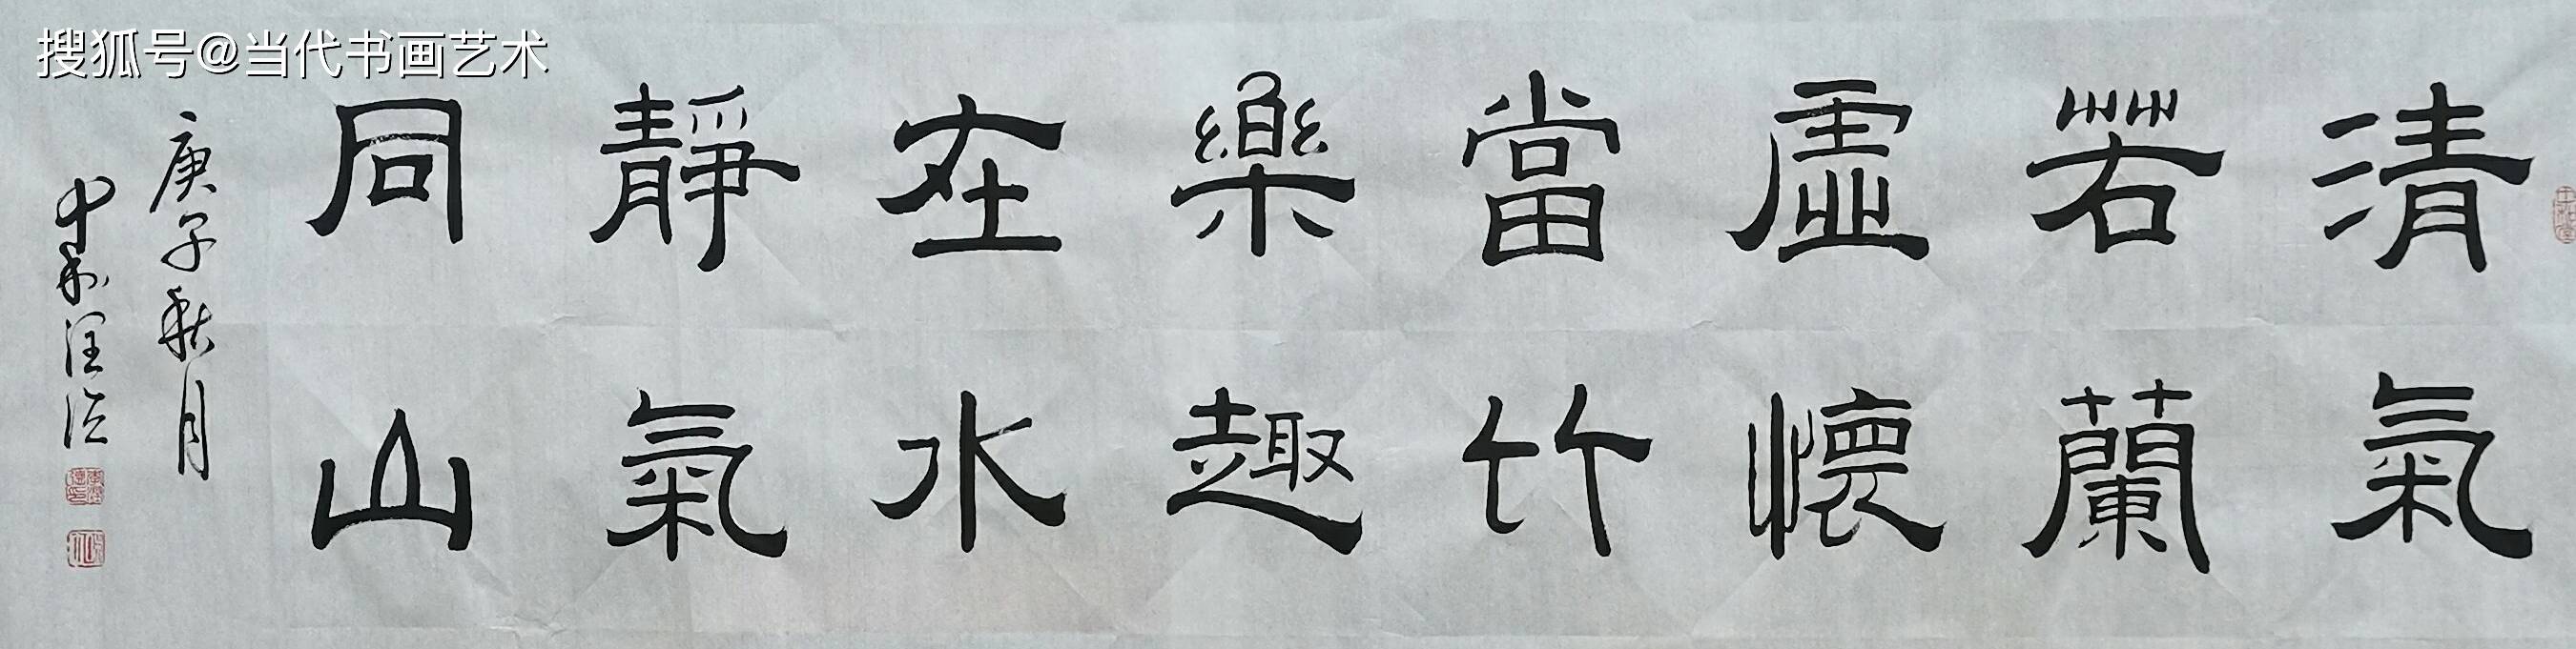 搜狐号@当代书画艺术
清氣
若蘭
虛懷
當竹
樂趣
在水
靜氣
同山
庚子秋月